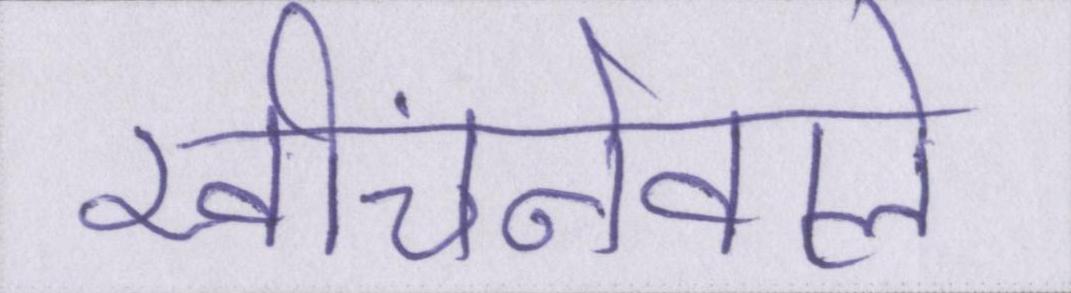 खीचंनेवाले